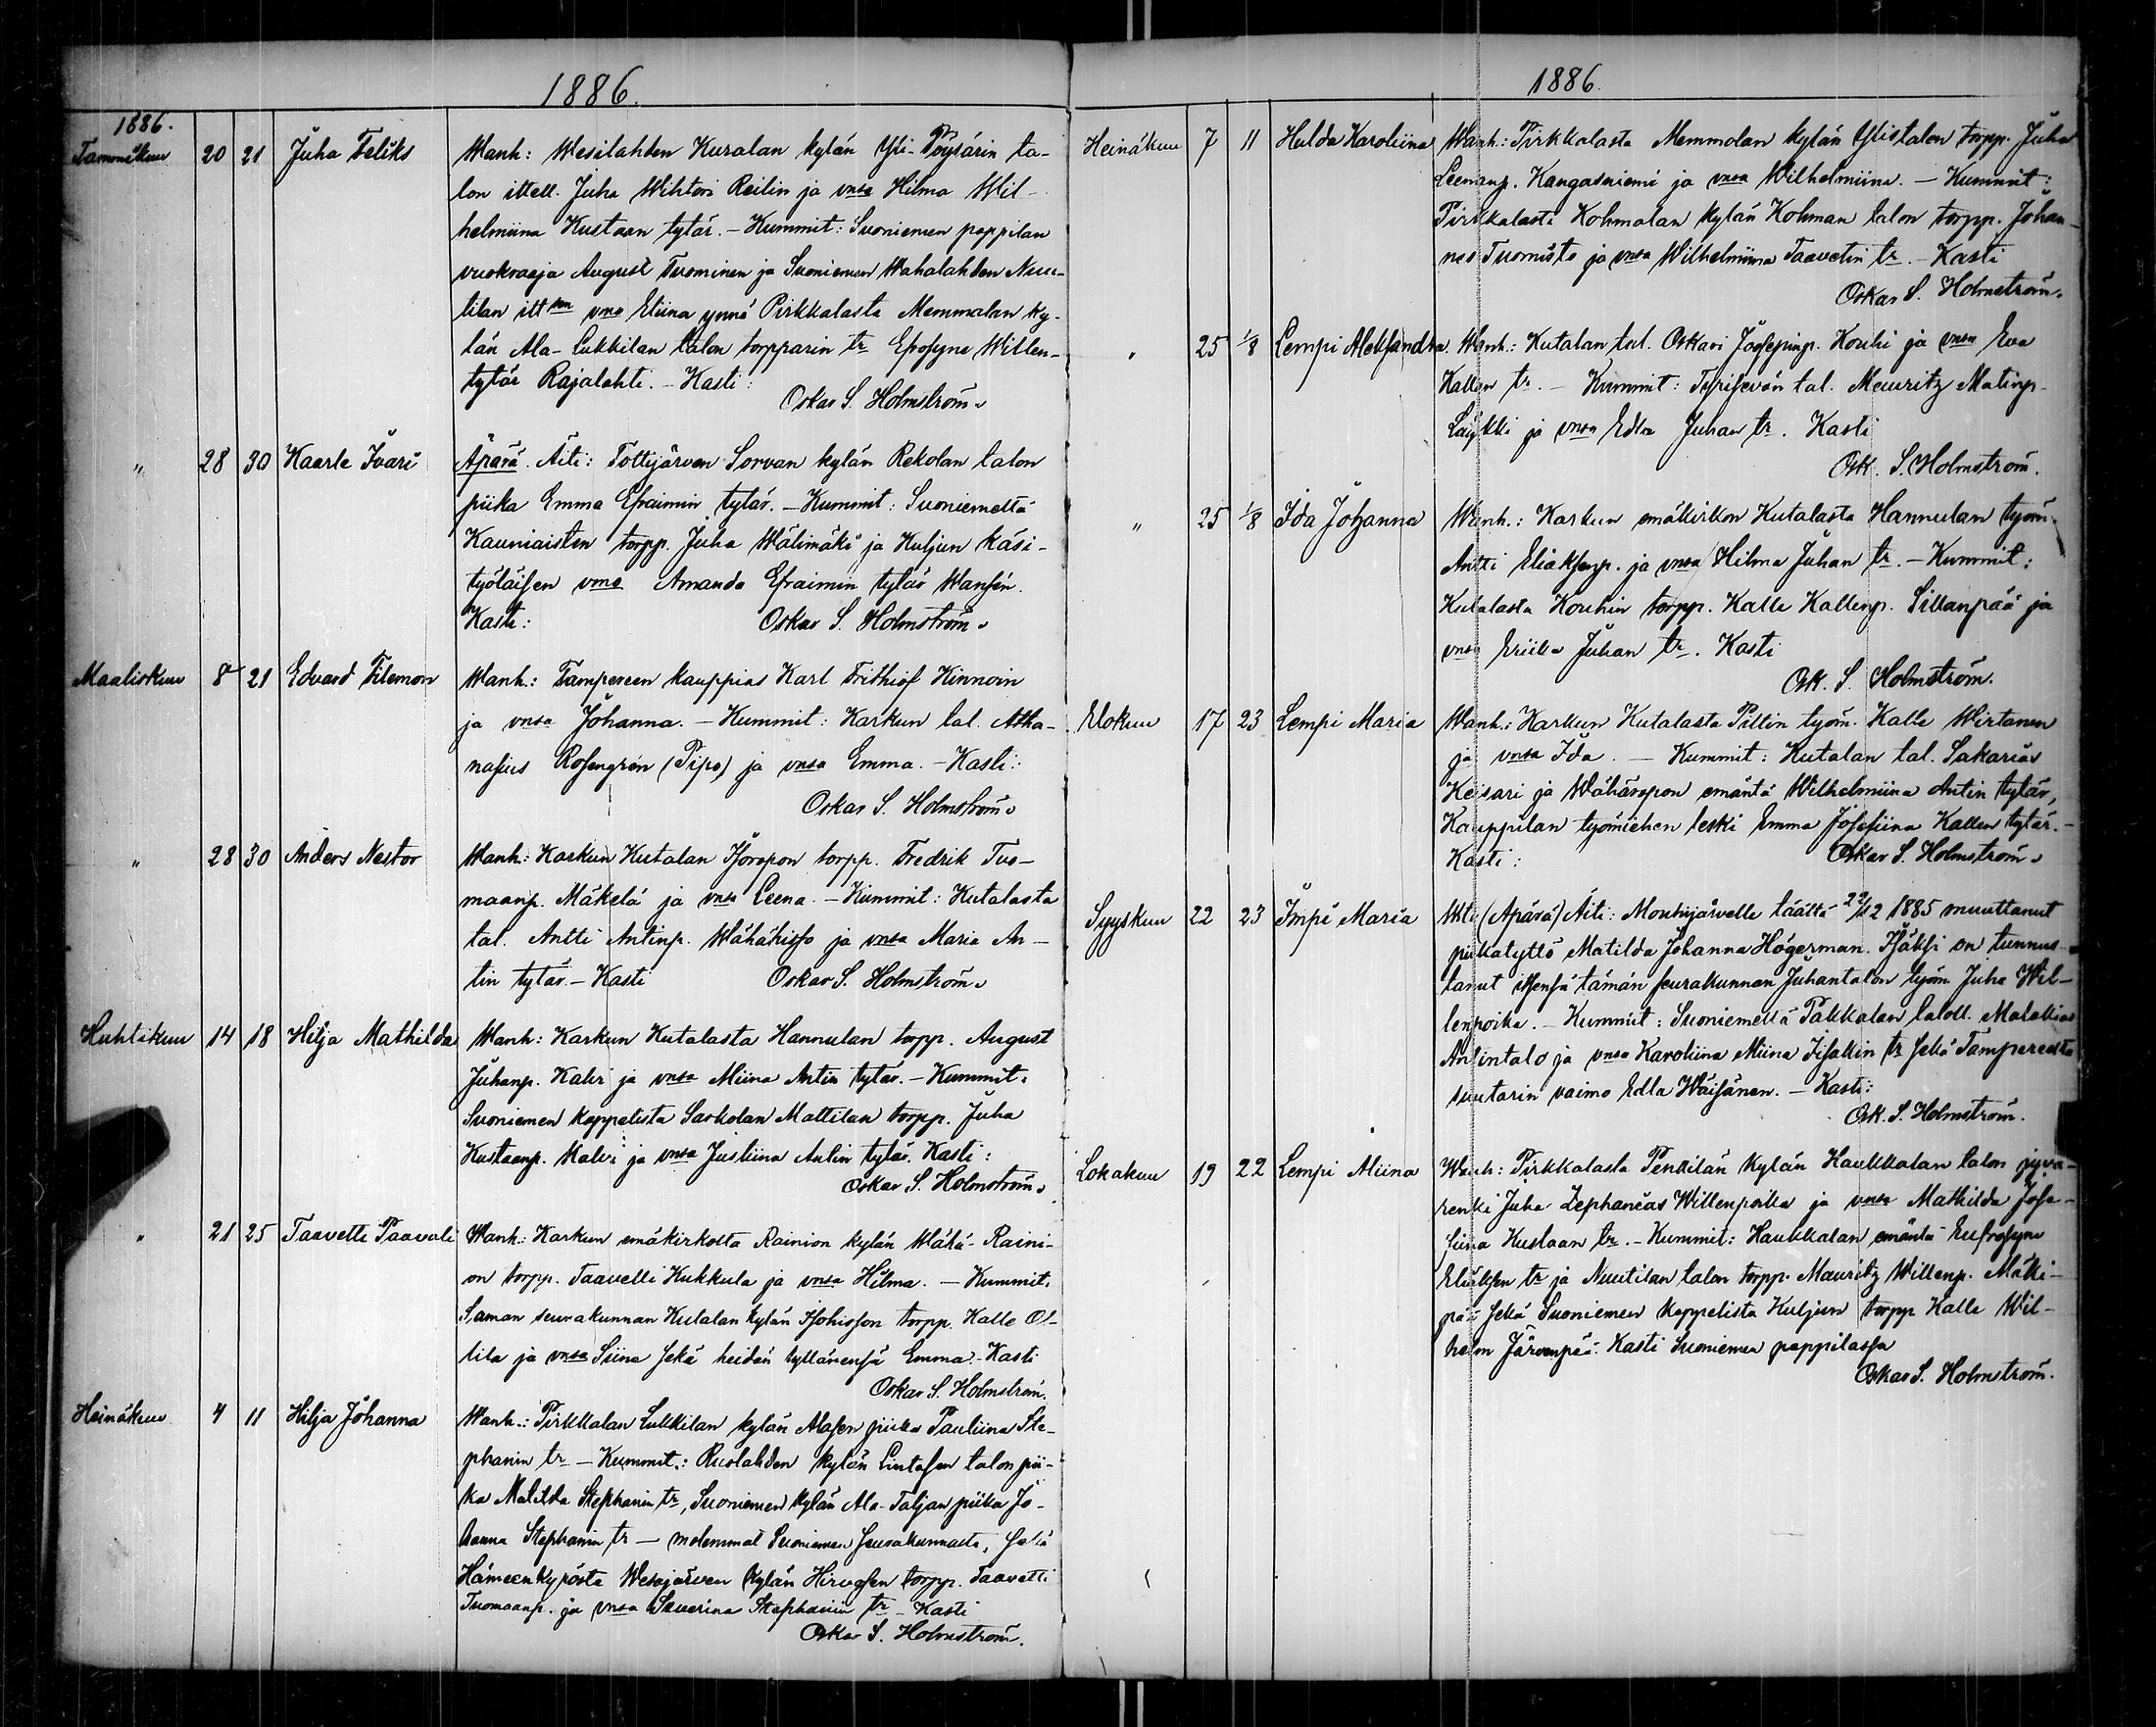 1886.
1886.
Tammikuu 20 21 Juha Feliks Wanh: Wesilahden Kuralan kylän Yli-Pöysärin ta-
lon ittell. Juha Wihtori Reilin ja vmsa Hilma Wil-
helmiina Kustaan tytär. - Kummit: Suoniemen pappilan
vuokraaja August Tuominen ja Suoniemen Wahalahden Nuu-
tilan vmo Eliina ynnä Pirkkalasta Memmalan ky-
län Ala-Lukkilan talon torpparin tr Efrosyne Willen-
tytär Rajalahti. - Kasti:
Oskar S. Holmström.
" 28 30 Kaarle Ivari Äpärä. Äiti: Tottijärven Sorvan kylän Rekolan talon
piika Emma Efraimin tytär. - Kummit: Suoniemeltä
Kauniaisten torpp. Juha Wälimäki ja Kuljun käsi-
työläisen vmo Amanda Efraimin tytär Wansén.
Kasti: Oskar S. Holmström.
Maaliskuu 8 21 Edvard Filemon Wanh.: Tampereen kauppias Karl Frithiof Kinnoin
ja vmsa Johanna. - Kummit: Karkun tal. Atha-
nasius Rosengrén (Pipo) ja vmsa Emma. - Kasti:
Oskar S. Holmström.
" 28 30 Anders Nestor Wanh: Karkun Kutalan Isoropon torpp. Fredrik Tuo-
maanp. Mäkelä ja vmsa Leena. - Kummit: Kutalasta
tal. Antti Antinp. Wähähisso ja vmsa Maria An-
tin tytär. - Kasti Oskar S. Holmström.
Huhtikuu 14 18 Hilja Mathilda Wanh: Karkun Kutalasta Hannulan torpp. August
Juhanp. Kalvi ja vmsa Miina Antin tytär. - Kummit:
Suoniemen kappelista Sarkolan Mattilan torpp. Juha
Kustaanp. Kalvi ja vmsa Justiina Antin tytär. Kasti:
Oskar S. Holmström.
" 21 25 Taavetti Paavali Wanh: Karkun emäkirkosta Rainion kylän Wähä-Raini-
on torpp. Taavetti Kukkula ja vmsa Hilma. - Kummit:
Saman seurakunnan Kutalan kylän Isohisson torpp. Kalle Ol-
lila ja vmsa Siina sekä heidän tyttärensä Emma. - Kasti
Oskar S. Holmström.
Heinäkuu 4 11 Hilja Johanna Wanh.: Pirkkalan Lukkilan kylän Alasen piika Pauliina Ste-
phanin tr - Kummit.: Ruolahden kylän Lintasen talon pii-
ka Matilda Stephanin tr, Suoniemen kylän Ala-Taljan piika Jo-
hanna Stephanin tr - molemmat Suoniemen seurakunnasta, sekä
Hämeenkyröstä Wesajärven kylän torpp. Taavetti
Tuomaanp. ja vmsa Severina Stephanin tr - Kasti
Oskar S. Holmström.
Heinäkuu 7 11 Hulda Karoliina Wanh.: Pirkkalasta Memmolan kylän Ylistalon torpp. Juha
Leenanp. Kangasniemi ja vmsa Wilhelmiina. - Kummit:
Pirkkalasta Kohmalan kylän Kohman talon torpp. Johan-
nes Tuomisto ja vmsa Wilhelmiina Taavetin tr. - Kasti
Oskar S. Holmström.
" 25 1/8 Lempi Aleksandra Wanh.: Kutalan tal. Oskari Joosepinp. Kouhi ja vmsa Eva
Kallen tr. - Kummit: tal. Mauritz Matinp.
Läykki ja vmsa Edla Juhan tr. Kasti
Osk. S. Holmström.
" 25 1/8 Ida Johanna Wanh.: Karkun emäkirkon Kutalasta Hannulan työm.
Antti Eliaksenp. ja vmsa Hilma Juhan tr. - Kummit:
Kutalasta Kouhin torpp. Kalle Kallenp. Sillanpää ja
vmsa Eriika Juhan tr. Kasti
Osk. S. Holmström.
Elokuu 17 23 Lempi Maria Wanh.: Karkun Kutalasta Pittin työm. Kalle Wirtanen
ja vmsa Ida. - Kummit: Kutalan tal. Sakarias
Keisari ja Wähäropon emäntä Wilhelmiina Antin tytär,
Kauppilan työmiehen leski Emma Josefiina Kallen tytär. -
Kasti: Oskar S. Holmström.
Syyskuu 22 23 Impi Maria (Äpärä) Äiti: Mouhijärvelle täältä 22/12 1885 muuttanut
piikatyttö Matilda Johanna Högerman. Isäksi on tunnus-
tanut itsensä tämän seurakunnan Juhantalon työm. Juha Wil-
lenpoika. - Kummit: Suoniemeltä Pakkalan taloll. Malakias
Antintalo ja vmsa Karoliina Miina Iisakin tr sekä Tampereelta
suutarin vaimo Edla Wäisänen. - Kasti:
Osk. S. Holmström.
Lokakuu 19 22 Lempi Miina Wanh: Pirkkalasta Penkilän kylän Haukkalan talon jyvä-
renki Juha Zephanias Willenpoika ja vmsa Mathilda Jose-
fiina Kustaan tr. - Kummit: Haukkalan emäntä Eufrosyne
Eliaksen tr ja Nuutilan talon torpp. Mauritz Willenp. Mäki-
pää sekä Suoniemen kappelista Kuljun torpp Kalle Wil-
helm Järvenpää. Kasti Suoniemen pappilassa
Oskar S. Holmström.